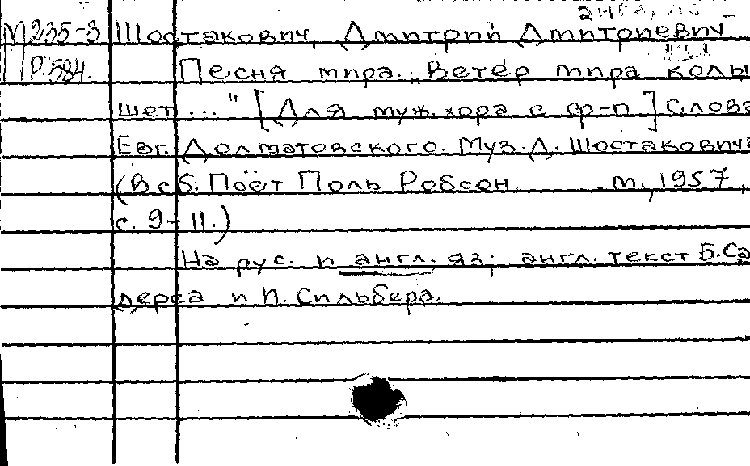 М235-3 Шостакович, Дмитрий Дмитриевич
Р584. Песня мира. „Ветер мира колы
шет..." [Для муж. хора с ф-п] Слова
Евг. Долматовского. Муз. Д. Шостаковича
(В сб. Поет Поль Робсон М., 1957,
с. 9-11.)
На рус. и англ. яз; англ. текст Б. Са
дерса и И. Сильбера.